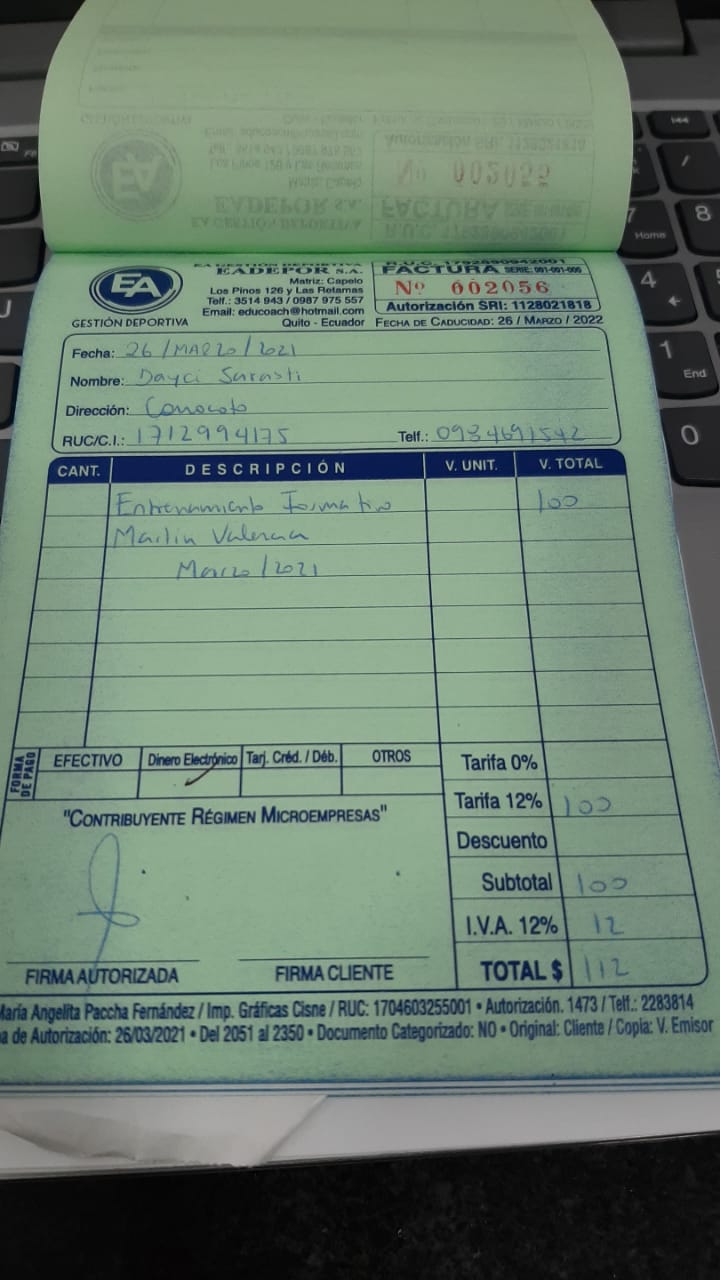 Nº 002055
EA GESTIÓN DEPORTIVA
EADEPOR S.A.
FACTURA
Autorización SRI: 1128021818
EA
GESTIÓN DEPORTIVA
EA GESTIÓN DEPORTIVA
EADEPOR S.A.
Matriz: Capelo
Los Pinos 126 y Las Retamas
Telf.: 3514 943 / 0987 975 557
Email: educoach@hotmail.com
Quito - Ecuador
R.U.C. 1792690942001
FACTURA SERIE: 001-001-000
Nº 002056
Autorización SRI: 1128021818
FECHA DE CADUCIDAD: 26 / MARZO / 2022
Fecha: 26 / MARZO / 2021
Nombre: Dayci Sarasti
Dirección: Conocoto
RUC/C.I.: 1712994175 Telf.: 0984691542
CANT. DESCRIPCIÓN V. UNIT. V. TOTAL
Entrenamiento Formativo 100
Mailin Valencia
Marzo / 2021
FORMA DE PAGO
EFECTIVO Dinero Electrónico Tarj. Créd. / Déb. OTROS
Tarifa 0%
Tarifa 12% 100
Descuento
Subtotal 100
I.V.A. 12% 12
TOTAL $ 112
"CONTRIBUYENTE RÉGIMEN MICROEMPRESAS"
FIRMA AUTORIZADA FIRMA CLIENTE
María Angelita Paccha Fernández / Imp. Gráficas Cisne / RUC: 1704603255001 • Autorización. 1473 / Telf.: 2283814
de Autorización: 26/03/2021 • Del 2051 al 2350 • Documento Categorizado: NO • Original: Cliente / Copia: V. Emisor
7 Home
8
4
1 End
0